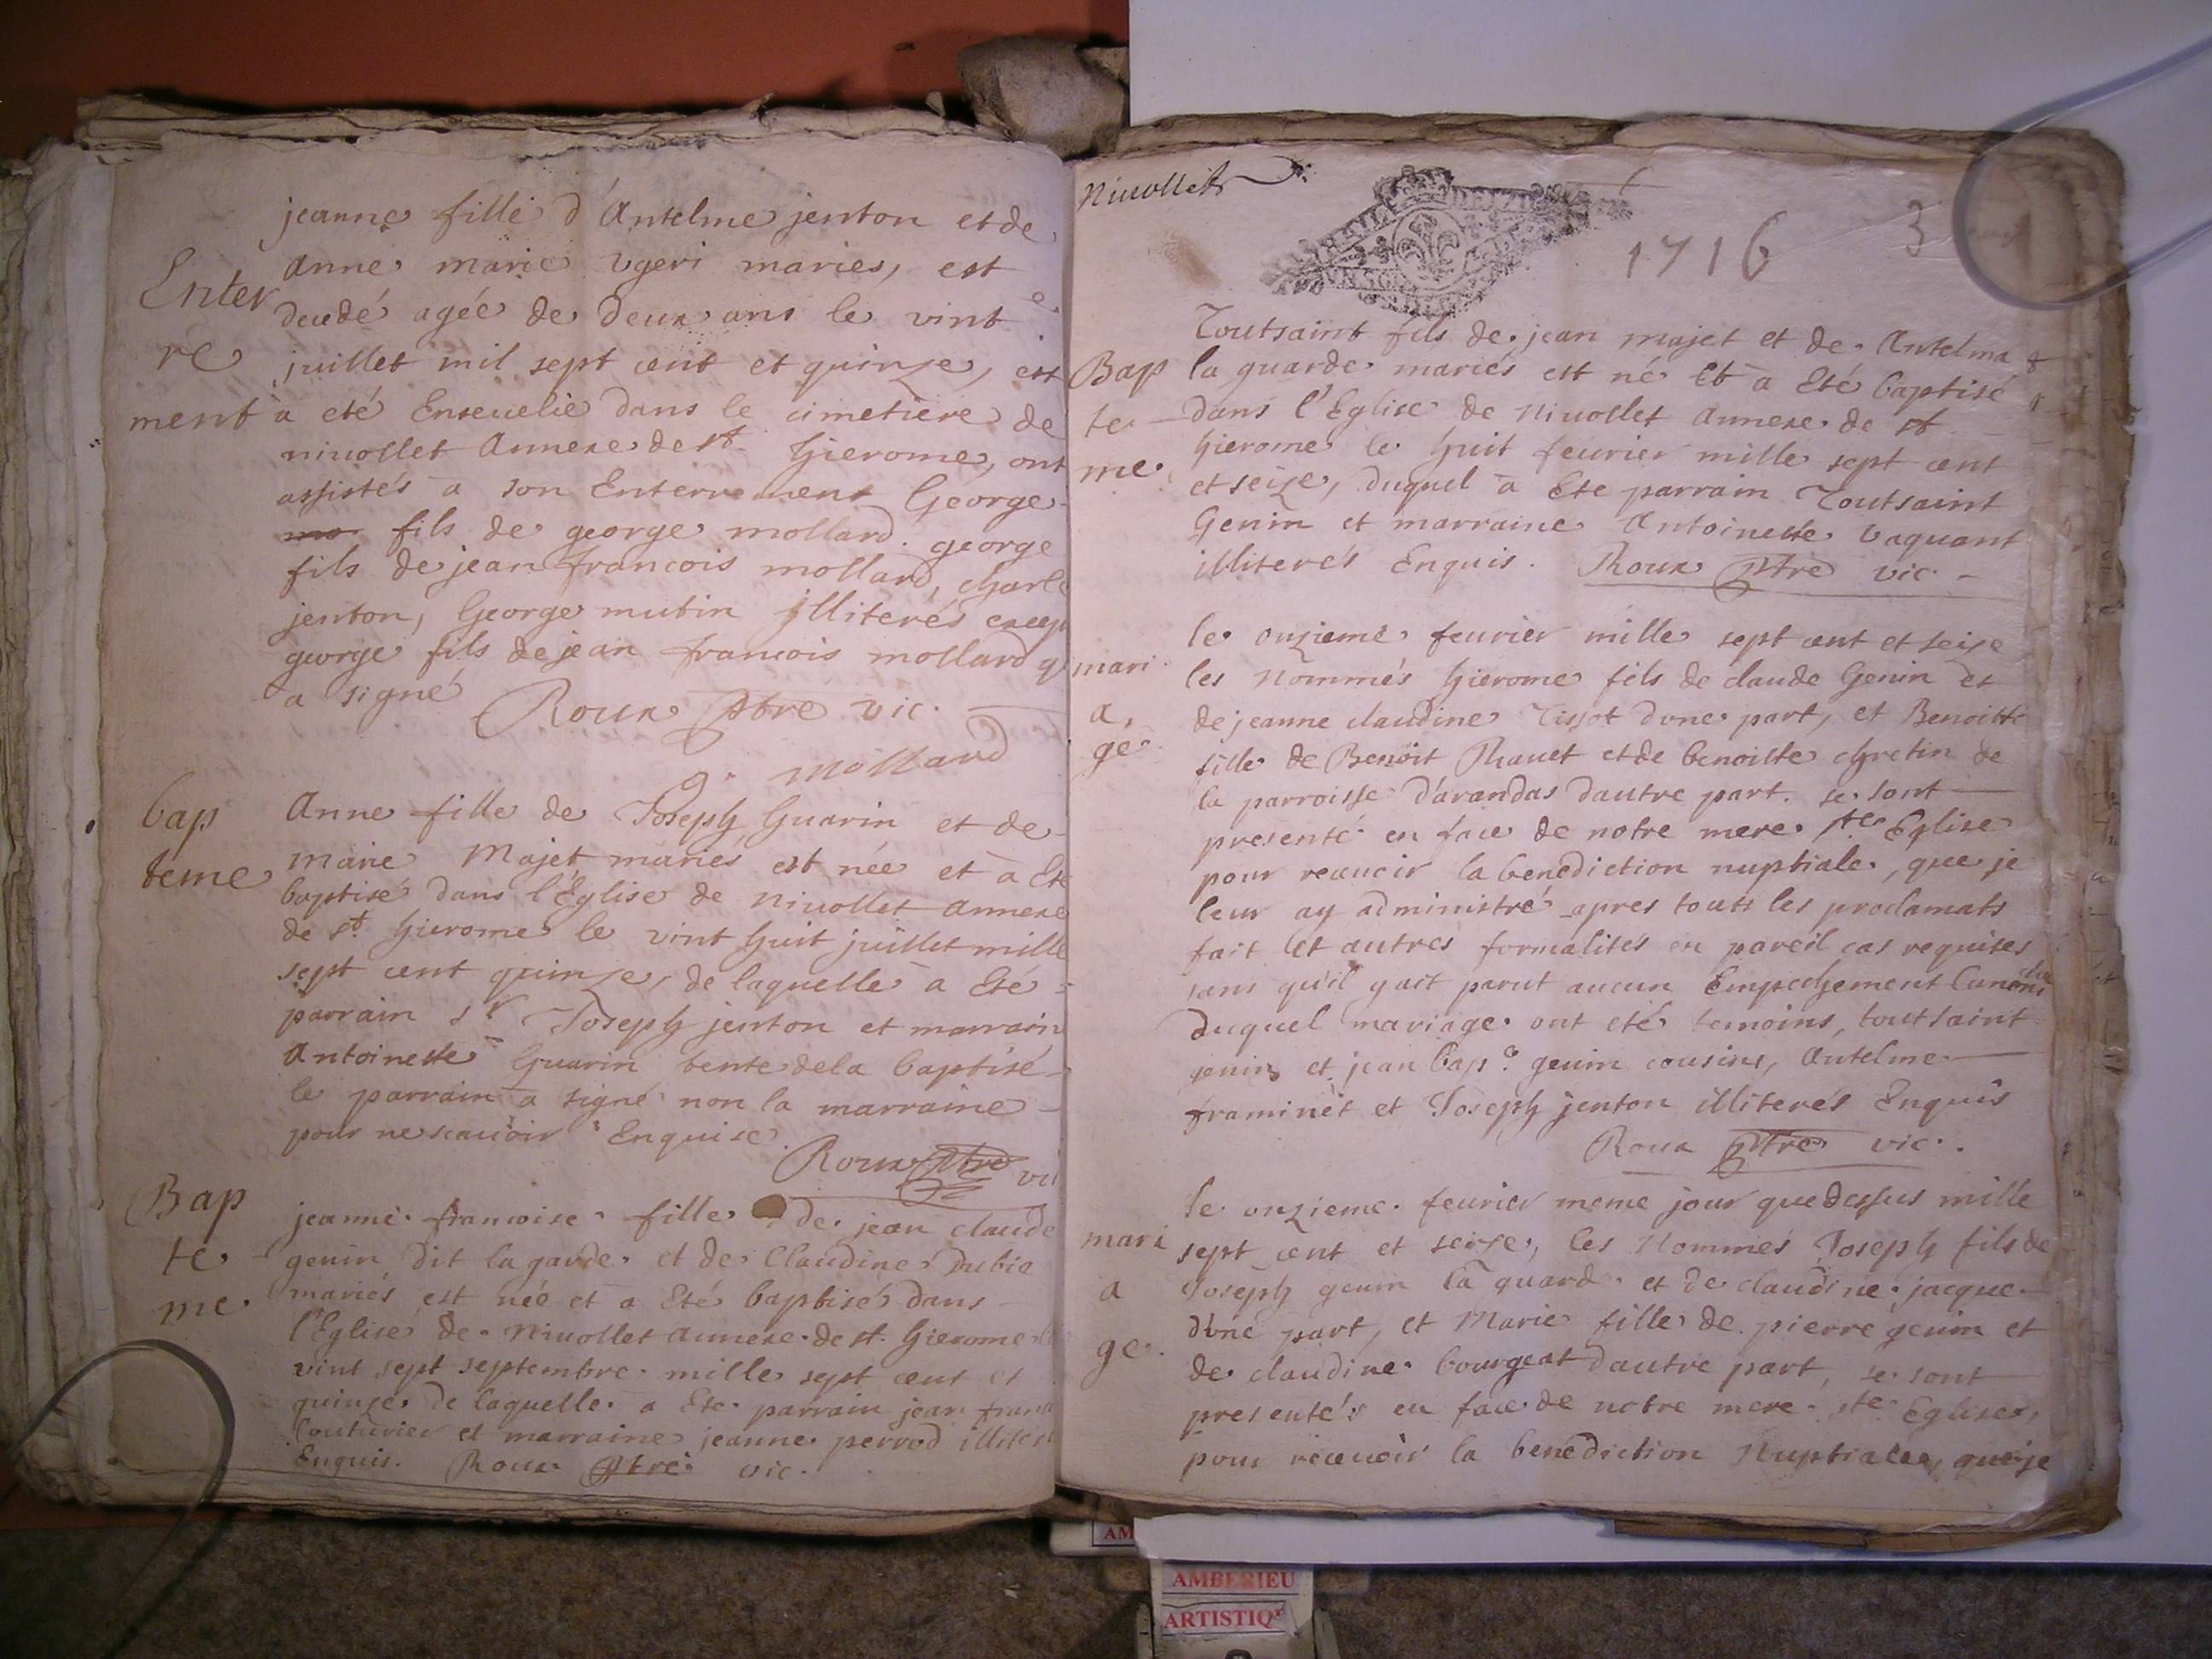 jeanne fille d'Antelme jenton et de
Anne marie ugeri maries, est
Enter
decedé agée de deux ans le vint
re
juillet mil sept cent et quinze, est
ment
a eté Enseuelie dans le cimetiere de
niuollet Annexe de st. hierome, ont
assistés a son Enterrement George
fils de george mollard. george
fils de jean francois mollard, charle
jenton, George mutin illiterés excep
george fils de jean francois mollard q
a signé Roux ptre vic.
g. mollard
bap
teme
Anne fille de Joseph Guarin et de
marie Majet mariés est née et a Eté
baptisé dans l'Eglise de niuollet annexe
de st. hierome le vint huit juillet mille
sept cent quinze, de laquelle a Eté
parrain sr Joseph jenton et marrain
Antoinette Guarin tente dela baptisé
le parrain a signé non la marraine
pour ne scauoir Enquise.
Roux ptre vi
Bap
te
me
jeanne francoise fille de jean claude
genin dit la garde et de Claudine Dubie
mariés est née et a Eté baptisé dans
l'Eglise de Niuollet annexe de st. hierome
vint sept septembre mille sept cent et
quinze de laquelle a Eté parrain jean fran
Couturier et marraine jeanne perrod illiter
Enquis. Roux ptre vic.
Niuollet
1716 3
Bap
te
me
Toutsaint fils de jean majet et de Antelma
la guarde mariés est né Et a Eté baptisé
dans l'Eglise de niuollet annexe de st
hierome le huit feurier mille sept cent
et seize, duquel a Ete parrain Toutsaint
Genin et marraine Antoinette vaquant
illiterés Enquis. Roux ptre vic.
mari
a
ge
le onzieme feurier mille sept cent et seize
les nommés hierome fils de claude Genin et
de jeanne claudine Tissot dune part, et Benoitte
fille de Benoit Rauet et de benoiste chretin de
la parroisse d'arandas dautre part. se sont
presenté en face de notre mere ste Eglise
pour receuoir la benediction nuptiale, que je
leur ay administré apres touts les proclamats
fait et autres formalités en pareil cas requises
sans qu'il y ait parut aucun Empechement Canoni
duquel mariage ont eté temoins, toutsaint
genin et jean bap.e genin cousins, Antelme
framinet et Joseph jenton illiterés Enquis
Roux ptre vic.
mari
a
ge
le onzieme feurier meme jour que dessus mille
sept cent et seize, les Nommés Joseph fils de
Joseph genin la guarde et de claudine jacque
dune part, et Marie fille de pierre genin et
de claudine bourgeat dautre part, se sont
presentés en face de notre mere ste Eglise,
pour receuoir la benediction Nuptiale, que je
AMBERIEU
ARTISTIQ